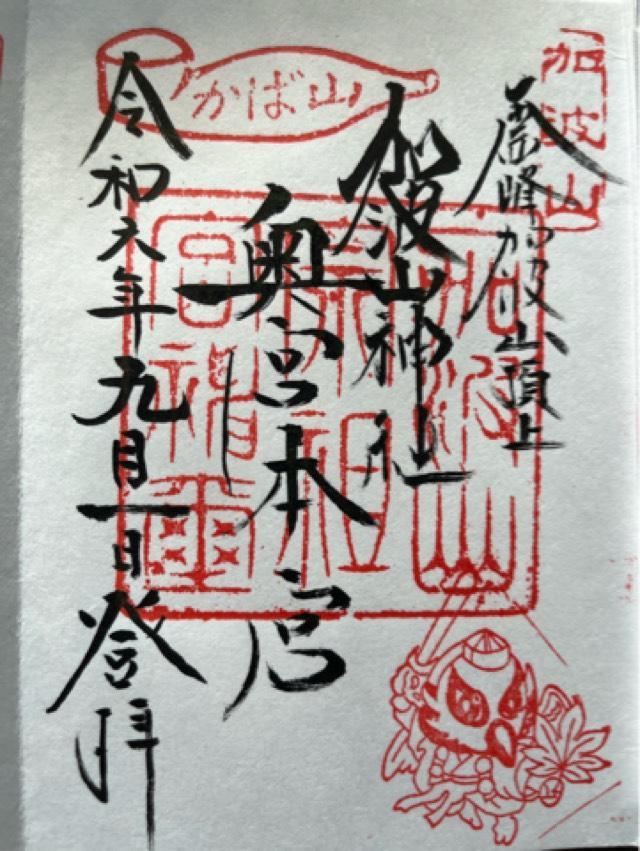 加波山
霊峰加波山頂上
加波山神社
奥宮本宮
かば山
令和六年九月一日登拝